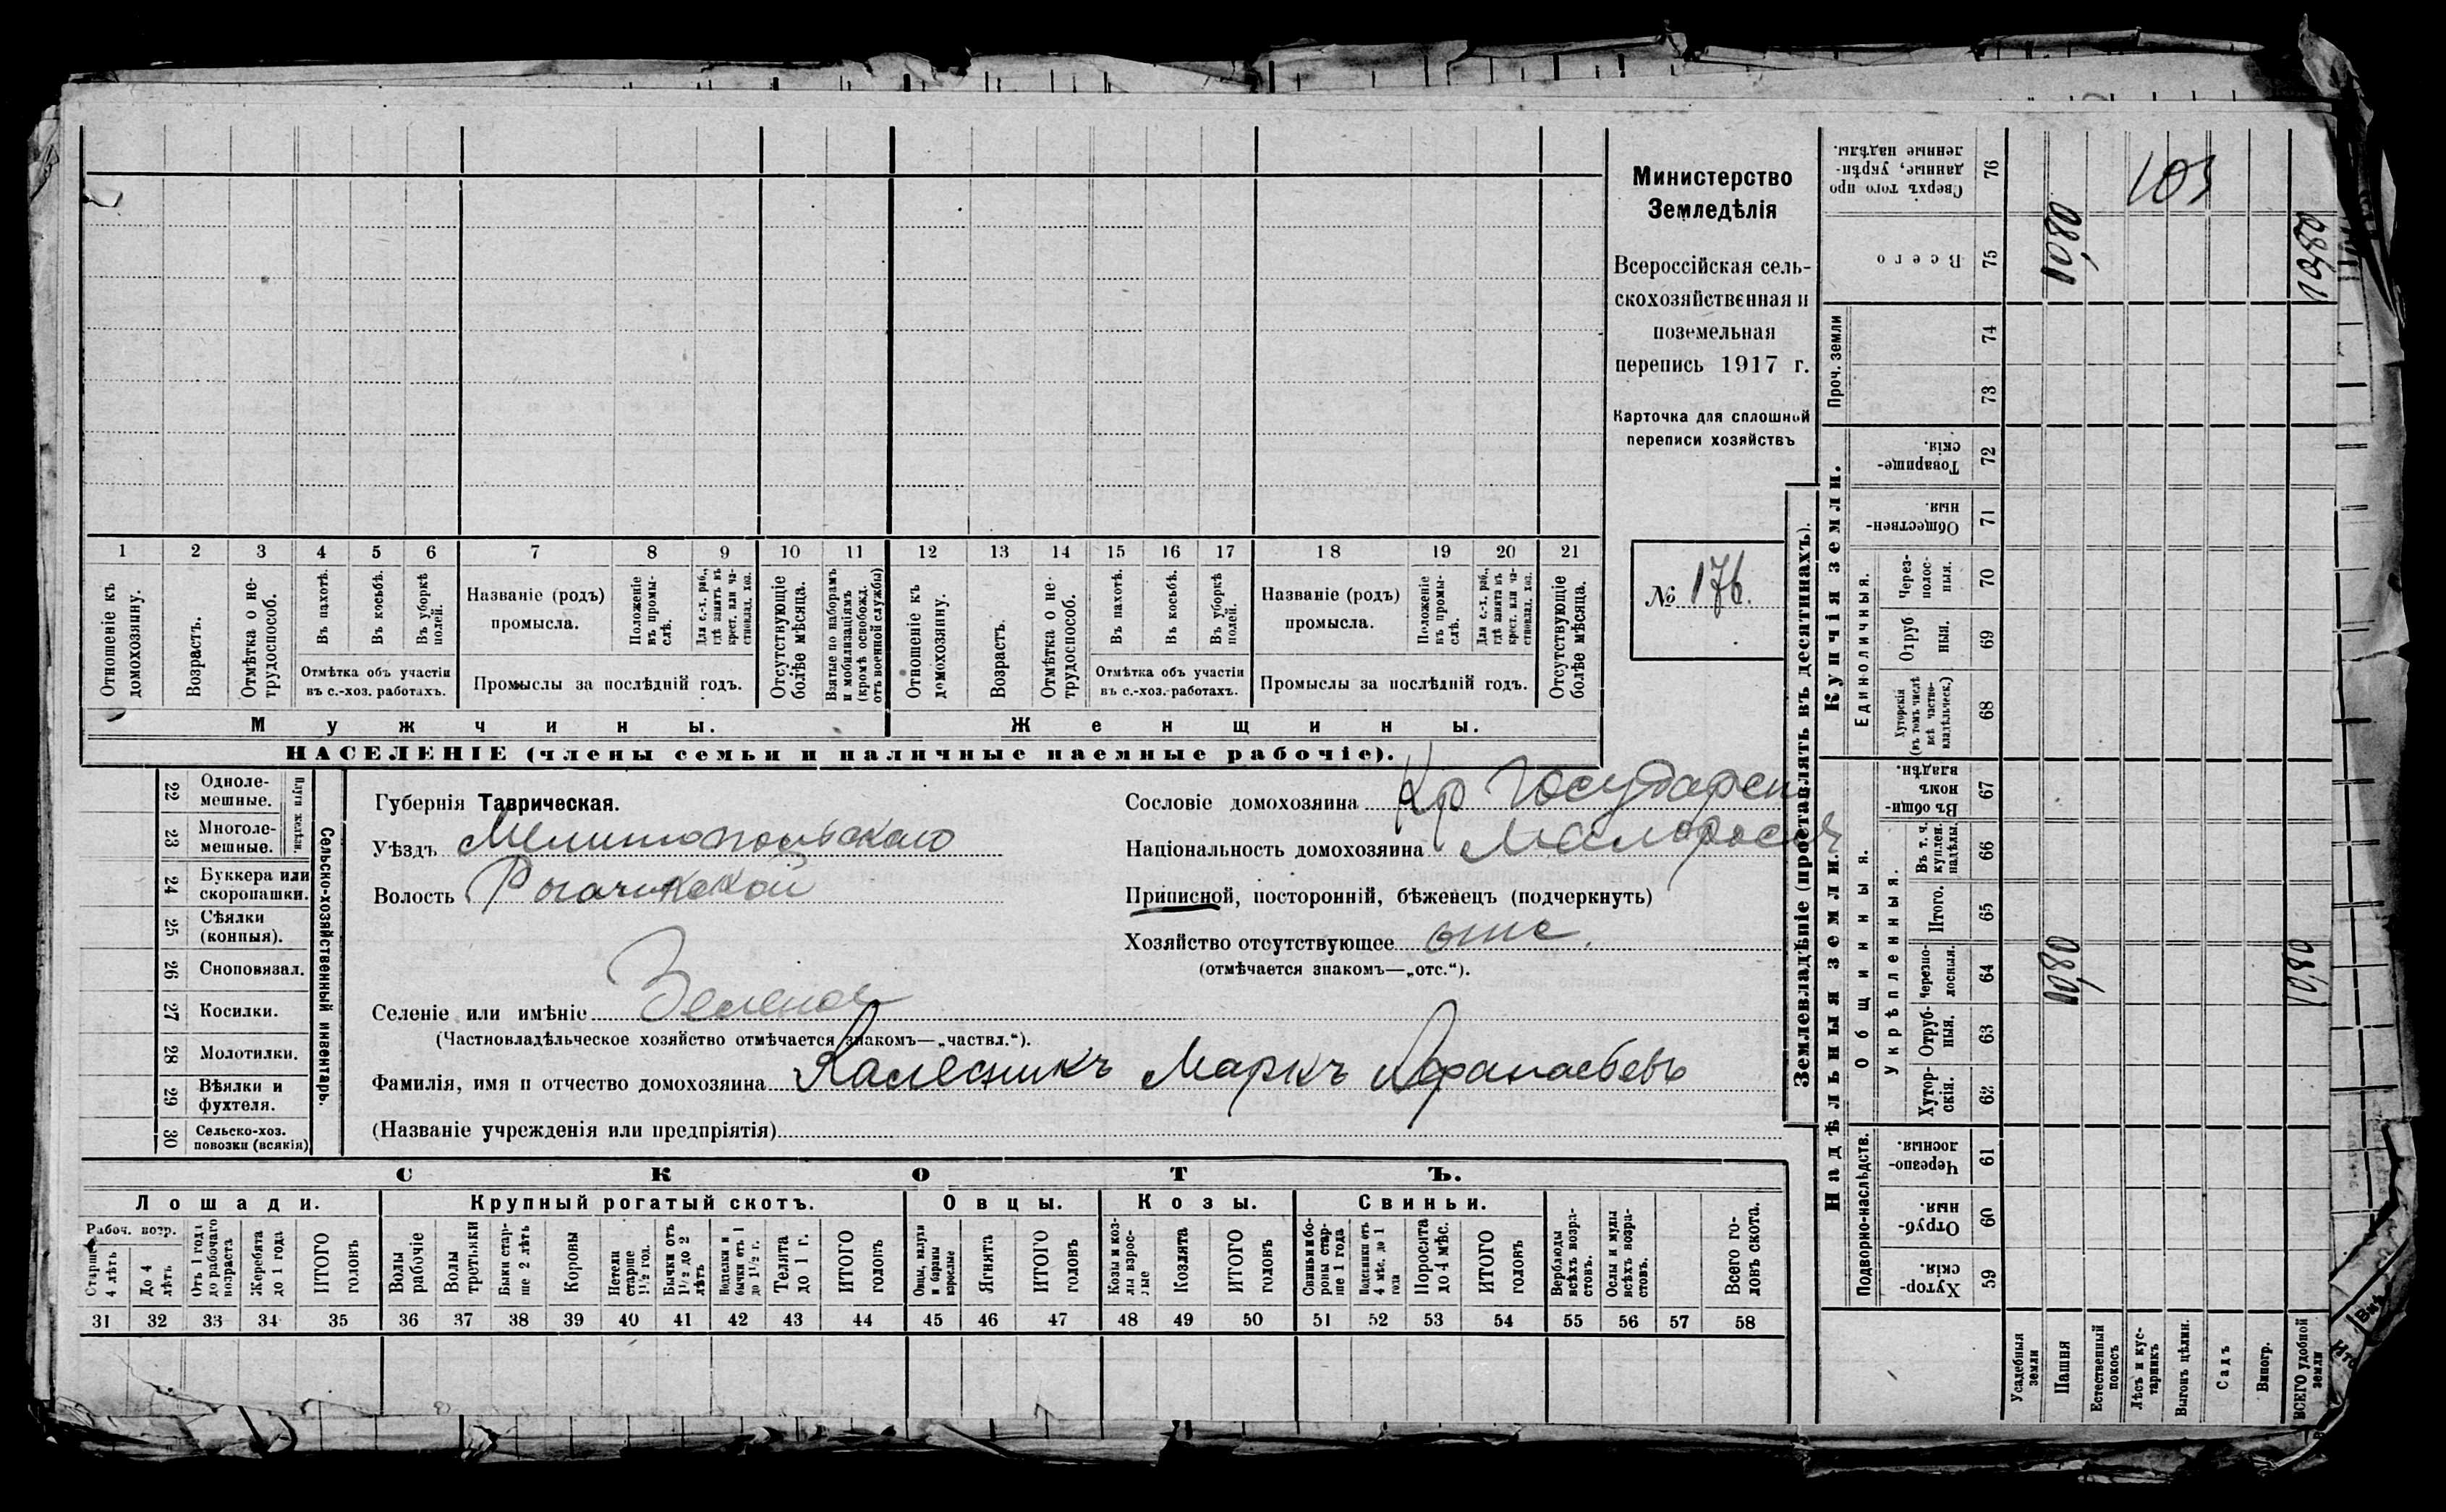 Министерство
Земледѣлія
Всероссійская сель-
скохозяйственная и
поземельная
перепись 1917 г.
Карточка для сплошной
переписи хозяйствъ
№ 176.
1 2 3 4 5 6 7 8 9 10 11 12 13 14 15 16 17 18 19 20 21
Отношеніе къ домохозяину.
Возрастъ.
Отмѣтка о не-трудоспособ.
Въ пахотѣ.
Въ косьбѣ.
Въ уборкѣ полей.
Отмѣтка объ участіи
въ с.-хоз. работахъ.
Названіе (родъ)
промысла.
Положеніе въ промы-слѣ.
Для с.-х. раб., гдѣ занятъ въ крест. или ча-стновлад. хоз.
Промыслы за послѣдній годъ.
Отсутствующіе болѣе мѣсяца.
Взятые по наборамъ и мобилизаціямъ (кромѣ освобожд. отъ военной службы)
Отношеніе къ домохозяину.
Возрастъ.
Отмѣтка о не-трудоспособ.
Въ пахотѣ.
Въ косьбѣ.
Въ уборкѣ полей.
Отмѣтка объ участіи
въ с.-хоз. работахъ.
Названіе (родъ)
промысла.
Положеніе въ промы-слѣ.
Для с.-х. раб., гдѣ занята въ крест. или ча-стновлад. хоз.
Промыслы за послѣдній годъ.
Отсутствующіе болѣе мѣсяца.
Мужчины.
Женщины.
НАСЕЛЕНІЕ (члены семьи и наличные наемные рабочіе).
Сельско-хозяйственный инвентарь.
22 Одноле-мешные.
23 Многоле-мешные.
24 Буккера или скоропашки.
25 Сѣялки (конныя).
26 Сноповязал.
27 Косилки.
28 Молотилки.
29 Вѣялки и фухтеля.
30 Сельско-хоз. повозки (всякія)
Губернія Таврическая.
Уѣздъ Мелитопольскаго
Волость Рогачикской
Селеніе или имѣніе Зеленое
(Частновладѣльческое хозяйство отмѣчается знакомъ—„частвл.“).
Фамилія, имя и отчество домохозяина Калесникъ Маркъ Афанасьевъ
(Названіе учрежденія или предпріятія)
Сословіе домохозяина Кр Государствен
Національность домохозяина Малоросъ
Приписной, посторонній, бѣженецъ (подчеркнуть)
Хозяйство отсутствующее отс.
(отмѣчается знакомъ—„отс.“).
СКОТЪ.
Лошади.
Крупный рогатый скотъ.
Овцы.
Козы.
Свиньи.
Рабоч. возр.
Старше 4 лѣтъ
До 4 лѣтъ
Отъ 1 года до рабочаго возраста
Жеребята до 1 года
ИТОГО головъ
Волы рабочіе
Волы третьяки
Быки стар-ше 2 лѣтъ
Коровы
Нетели старше 1½ год.
Бычки отъ 1½ до 2 лѣтъ
Подтелки и бычки отъ 1 до 1½ г.
Телята до 1 г.
ИТОГО головъ
Овцы, валухи и бараны взрослые
Ягнята
ИТОГО головъ
Козы и коз-лы взрос-лые
Козлята
ИТОГО головъ
Свиньи и бо-ровы стар-ше 1 года
Подсвинки отъ 4 мѣс. до 1 года
Поросята до 4 мѣс.
ИТОГО головъ
Верблюды всѣхъ возра-стовъ.
Ослы и мулы всѣхъ возра-стовъ.
Всего го-ловъ скота.
31 32 33 34 35 36 37 38 39 40 41 42 43 44 45 46 47 48 49 50 51 52 53 54 55 56 57 58
Землевладѣніе (проставлять въ десятинахъ).
Купчія земли.
Надѣльныя земли.
Проч. земли
Единоличныя.
Общинныя.
Укрѣпленныя.
Подворно-наслѣдств.
Сверхъ того про данные, укрѣп-ленные надѣлы. 76
Всего 75 10,80 10,80
103
74
73
Товарище-скія. 72
Обществен-ныя. 71
Через-полос-ныя. 70
Отруб ныя. 69
Хуторскія (въ томъ числѣ всѣ частно-владѣльческ.) 68
Въ общи-номъ владѣн. 67
Въ т. ч. куплен. надѣлы. 66
Итого. 65
Черезпо-лосныя. 64 10,80 10,80
Отруб-ныя. 63
Хутор-скія. 62
Черезпо-лосныя. 61
Отруб-ныя. 60
Хутор-скія. 59
Усадебныя земли
Пашня
Естественный покосъ
Лѣсъ и кус-тарникъ
Выгонъ цѣлин.
Садъ
Виногр.
ВСЕГО удобной земли